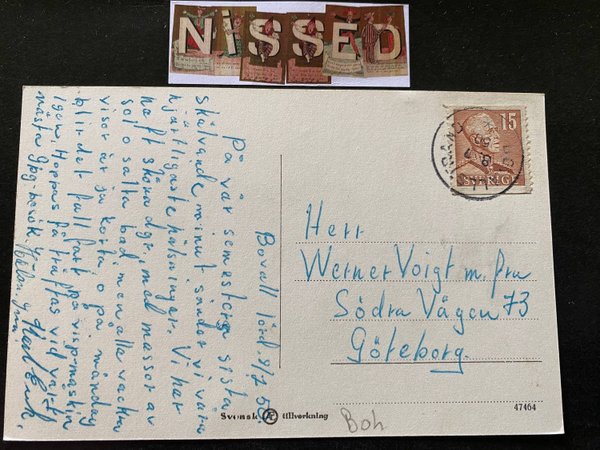 NISSED
Bovall lörd. 8/7 50.
På vår semesters sista
skälvande minut sänder vi våra
hjärtligaste hälsningar. Vi har
haft sköna dgr, med massor av
sol o salta bad men alla vackra
visor är ju korta, o på måndag
blir det full fart på vispmaskin
igen. Hoppas få träffas vid vårt
nästa Gbg-besök
15
SVERIGE
Herr
Werner Voigt m. fru
Södra Vägen 73
Göteborg.
Svensk tillverkning
47464
Boh